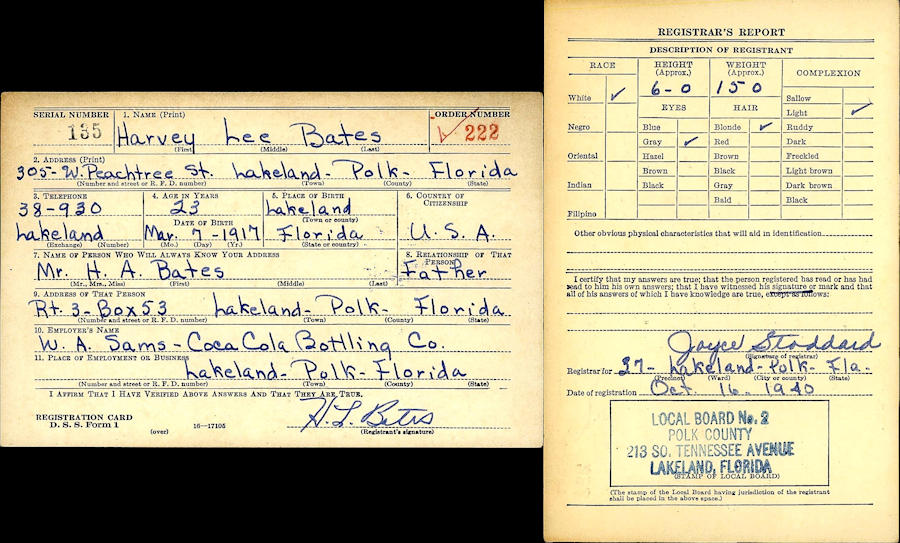 SERIAL NUMBER 1. NAME (Print) ORDER NUMBER
135 Harvey Lee Bates 222
(First) (Middle) (Last)
2. ADDRESS (Print)
305-W. Peachtree St. Lakeland- Polk- Florida
(Number and street or R. F. D. number) (Town) (County) (State)
3. TELEPHONE 4. AGE IN YEARS 5. PLACE OF BIRTH 6. COUNTRY OF CITIZENSHIP
38-930 23 Lakeland
(Town or county)
DATE OF BIRTH
Lakeland Mar. 7-1917 Florida U. S. A.
(Exchange) (Number) (Mo.) (Day) (Yr.) (State or country)
7. NAME OF PERSON WHO WILL ALWAYS KNOW YOUR ADDRESS 8. RELATIONSHIP OF THAT PERSON
Mr. H. A. Bates Father
(Mr., Mrs., Miss) (First) (Middle) (Last)
9. ADDRESS OF THAT PERSON
Rt. 3-Box 53 Lakeland- Polk- Florida
(Number and street or R. F. D. number) (Town) (County) (State)
10. EMPLOYER'S NAME
W. A. Sams-Coca Cola Bottling Co.
11. PLACE OF EMPLOYMENT OR BUSINESS
Lakeland-Polk-Florida
(Number and street or R. F. D. number) (Town) (County) (State)
I AFFIRM THAT I HAVE VERIFIED ABOVE ANSWERS AND THAT THEY ARE TRUE.
REGISTRATION CARD
D. S. S. Form 1 (over) 16—17105
H. L. Bates
(Registrant's signature)
REGISTRAR'S REPORT
DESCRIPTION OF REGISTRANT
RACE HEIGHT (Approx.) WEIGHT (Approx.) COMPLEXION
White ✓ 6-0 150 Sallow
EYES HAIR Light ✓
Negro Blue Blonde ✓ Ruddy
Gray ✓ Red Dark
Oriental Hazel Brown Freckled
Brown Black Light brown
Indian Black Gray Dark brown
Bald Black
Filipino
Other obvious physical characteristics that will aid in identification
I certify that my answers are true; that the person registered has read or has had
read to him his own answers; that I have witnessed his signature or mark and that
all of his answers of which I have knowledge are true, except as follows:
Joyce Stoddard
(Signature of registrar)
Registrar for 37- Lakeland-Polk- Fla-
(Precinct) (Ward) (City or county) (State)
Date of registration Oct. 16 - 1940
LOCAL BOARD No. 2
POLK COUNTY
213 SO. TENNESSEE AVENUE
LAKELAND, FLORIDA
(STAMP OF LOCAL BOARD)
(The stamp of the Local Board having jurisdiction of the registrant
shall be placed in the above space.)